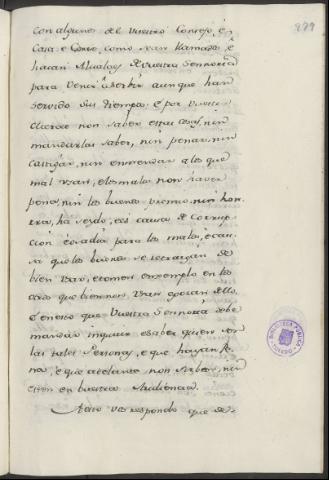 279
con algunos del vuestro Consejo, é
Casa e Corte, como sean llamados, é
hacian Alualaes de vuestra Sennoria
para venir á servir aunque han
servido sus tiempos. e por vuestra
claro non saber estas cosas, nin
mandarlas saber, nin penar, nin
castigar, nin enmendar a los que
mal usan, e los malos non haver
pena, nin los buenos premio, nin hon-
rra, ha seydo, e es causa de corrup-
cion é osadia para los malos, é cau-
sa que los buenos se retraygan de
bien usar, e tomen enxemplo en los
otros que
e en esto que Vuestra Sennoria debe
mandar inquirir e saber quien son
las tales Personas, e que hayan pe-
na, e que adelante non sirvan, nin
esten en vuestra Audiencia.
A esto vos respondo que de-
BIBLIOTECA PÚBLICA
TOLEDO